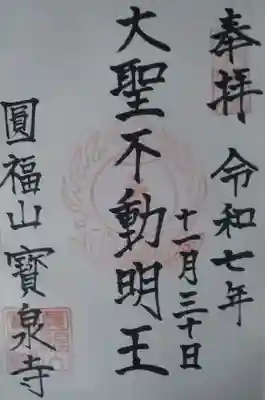 奉拝
令和七年
十一月三十日
大聖不動明王
圓福山寳泉寺